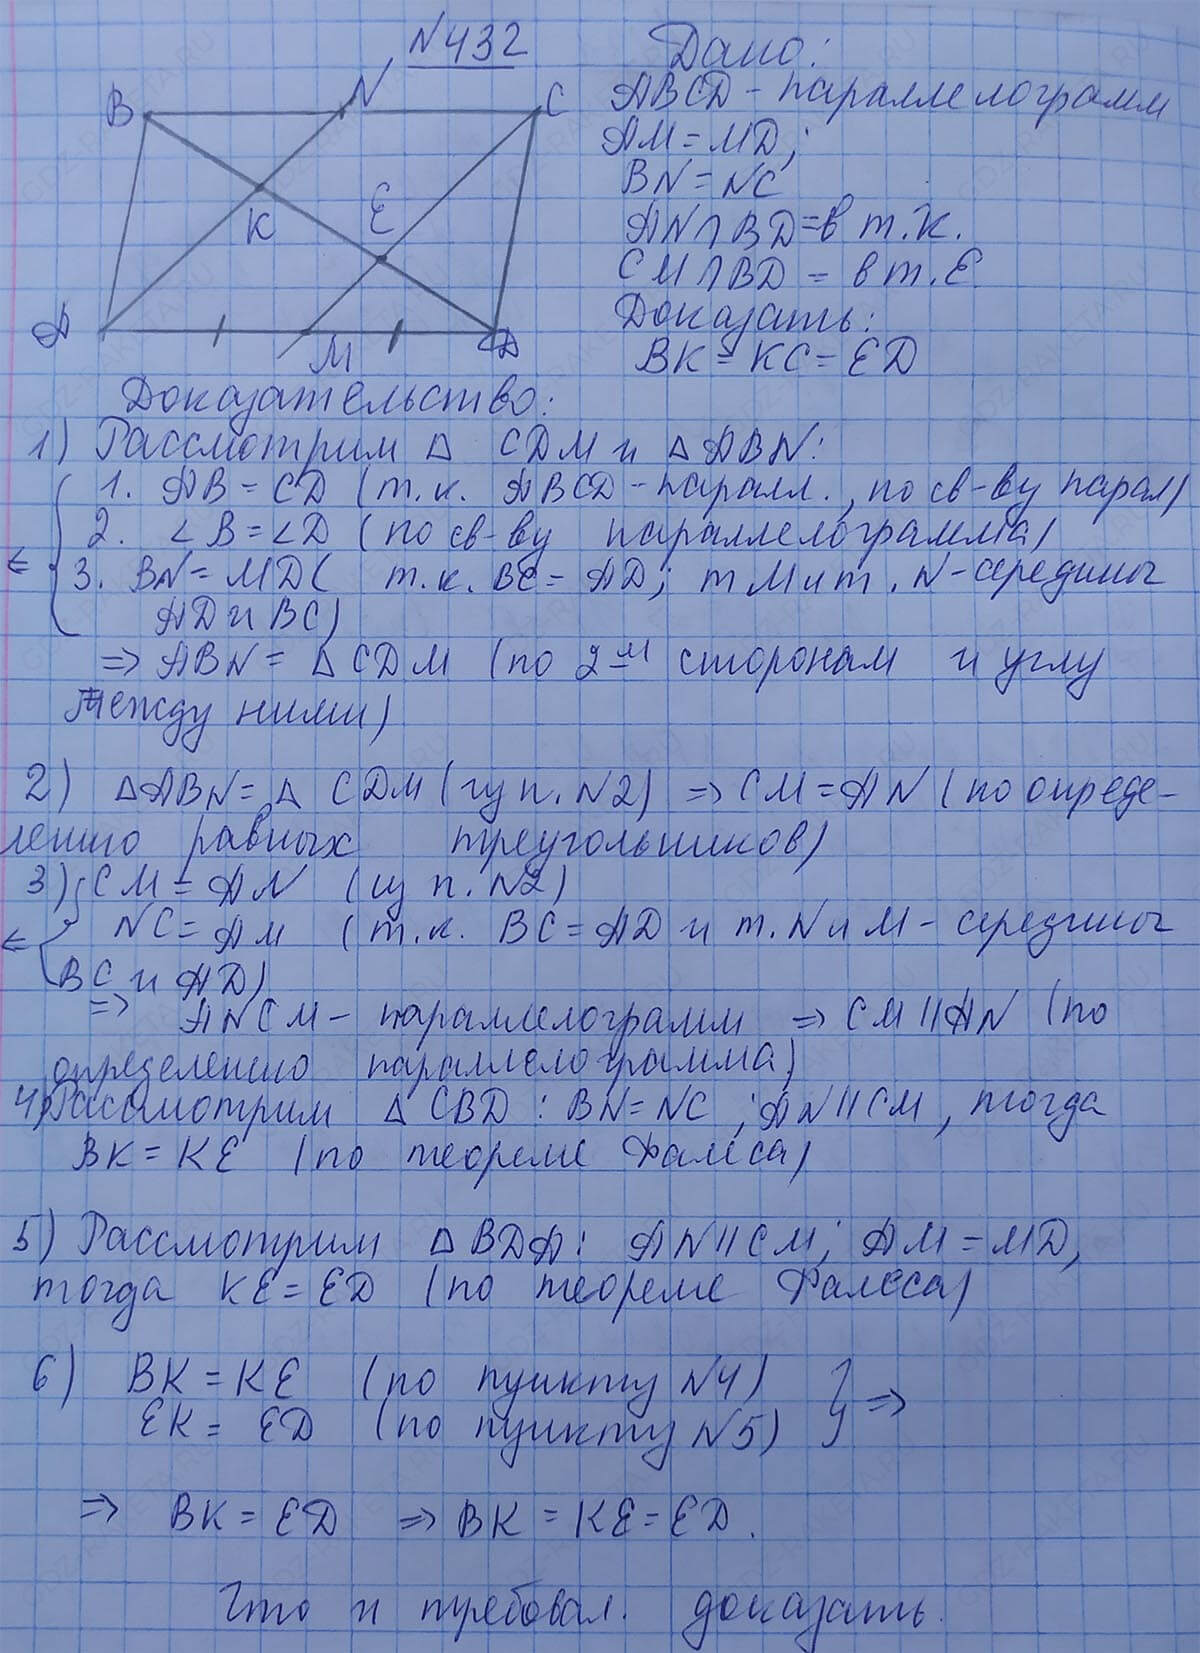 N432
Дано:
ABCD - параллелограмм
AM = MD;
BN = NC
AN ∩ BD = в т. K.
CM ∩ BD = в т. E
Доказать:
BK = KC = ED
B N C
K E
A M D
Доказательство:
1) Рассмотрим △ CDM и △ ABN:
1. AB = CD (т.к. ABCD - паралл., по св-ву парал)
2. ∠B = ∠D (по св-ву параллелограмма)
3. BN = MD ( т.к. BC = AD; т M и т. N - середины
AD и BC)
⇒ ABN = △ CDM (по 2м сторонам и углу
между ними)
2) △ABN = △ CDM (из п. N2) ⇒ CM = AN (по опреде-
лению равных треугольников)
3) CM = AN (из п. N2)
NC = AM (т.к. BC = AD и т. N и M - середины
BC и AD)
⇒ ANCM - параллелограмм ⇒ CM || AN (по
определению параллелограмма)
4) Рассмотрим △ CBD : BN = NC ; AN || CM, тогда
BK = KE (по теореме Фалеса)
5) Рассмотрим △ BDA: AN || CM; AM = MD,
тогда KE = ED (по теореме Фалеса)
6) BK = KE (по пункту N4)
EK = ED (по пункту N5) } ⇒
⇒ BK = ED ⇒ BK = KE = ED.
Что и требовал. доказать.